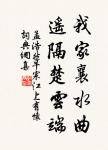 我家襄水曲
遙隔楚雲端
孟浩然早寒江上有懷
詞典網集